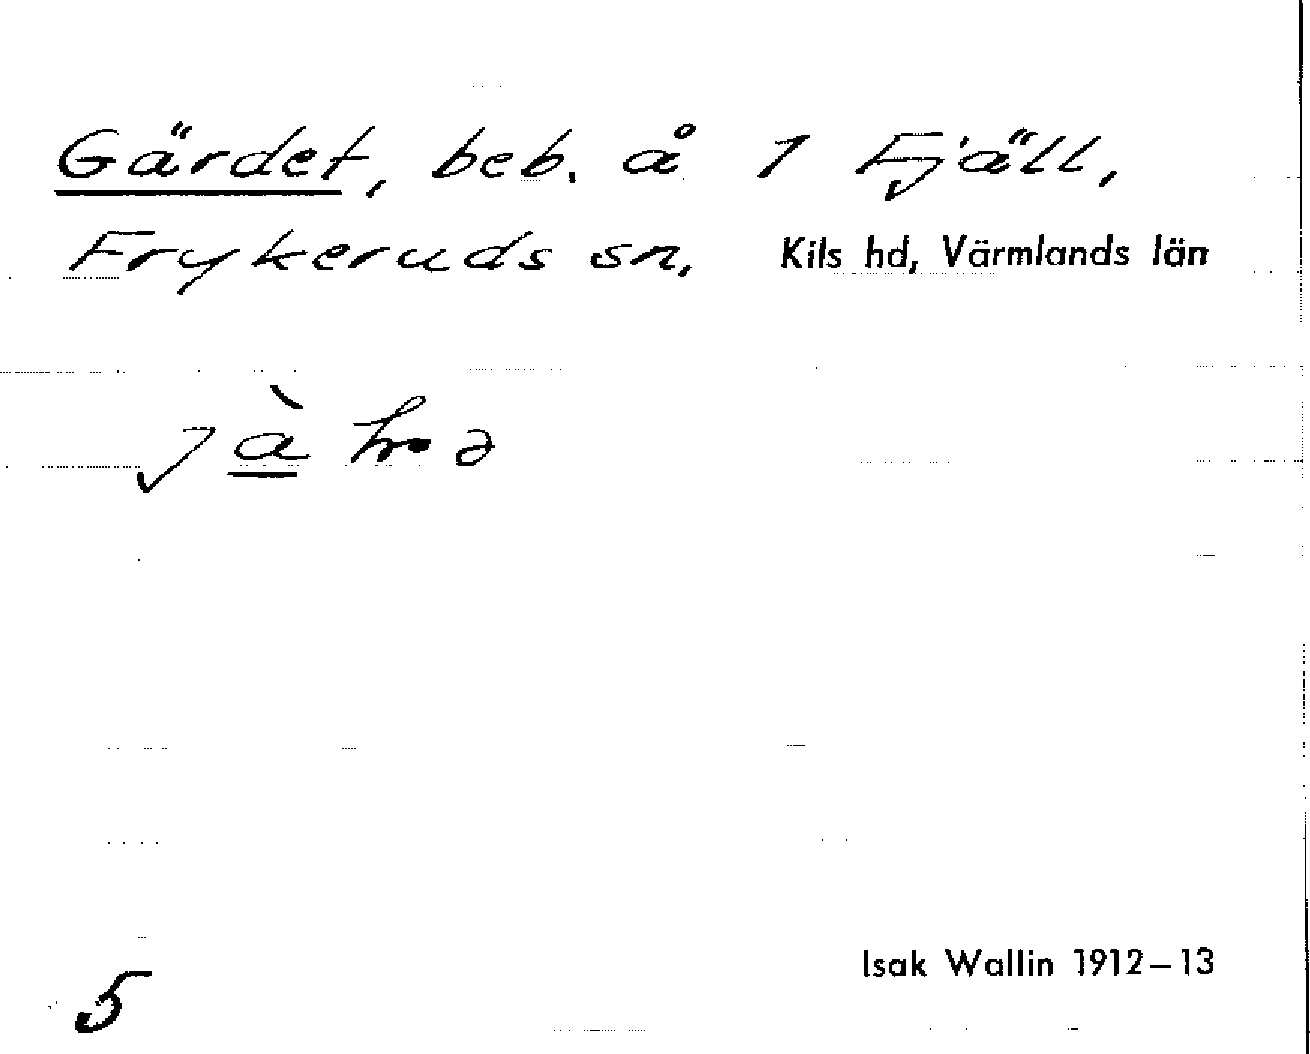 Gärdet, beb. å 1 Fjäll,
Frykeruds sn, Kils hd, Värmlands län
Isak Wallin 1912–13
5